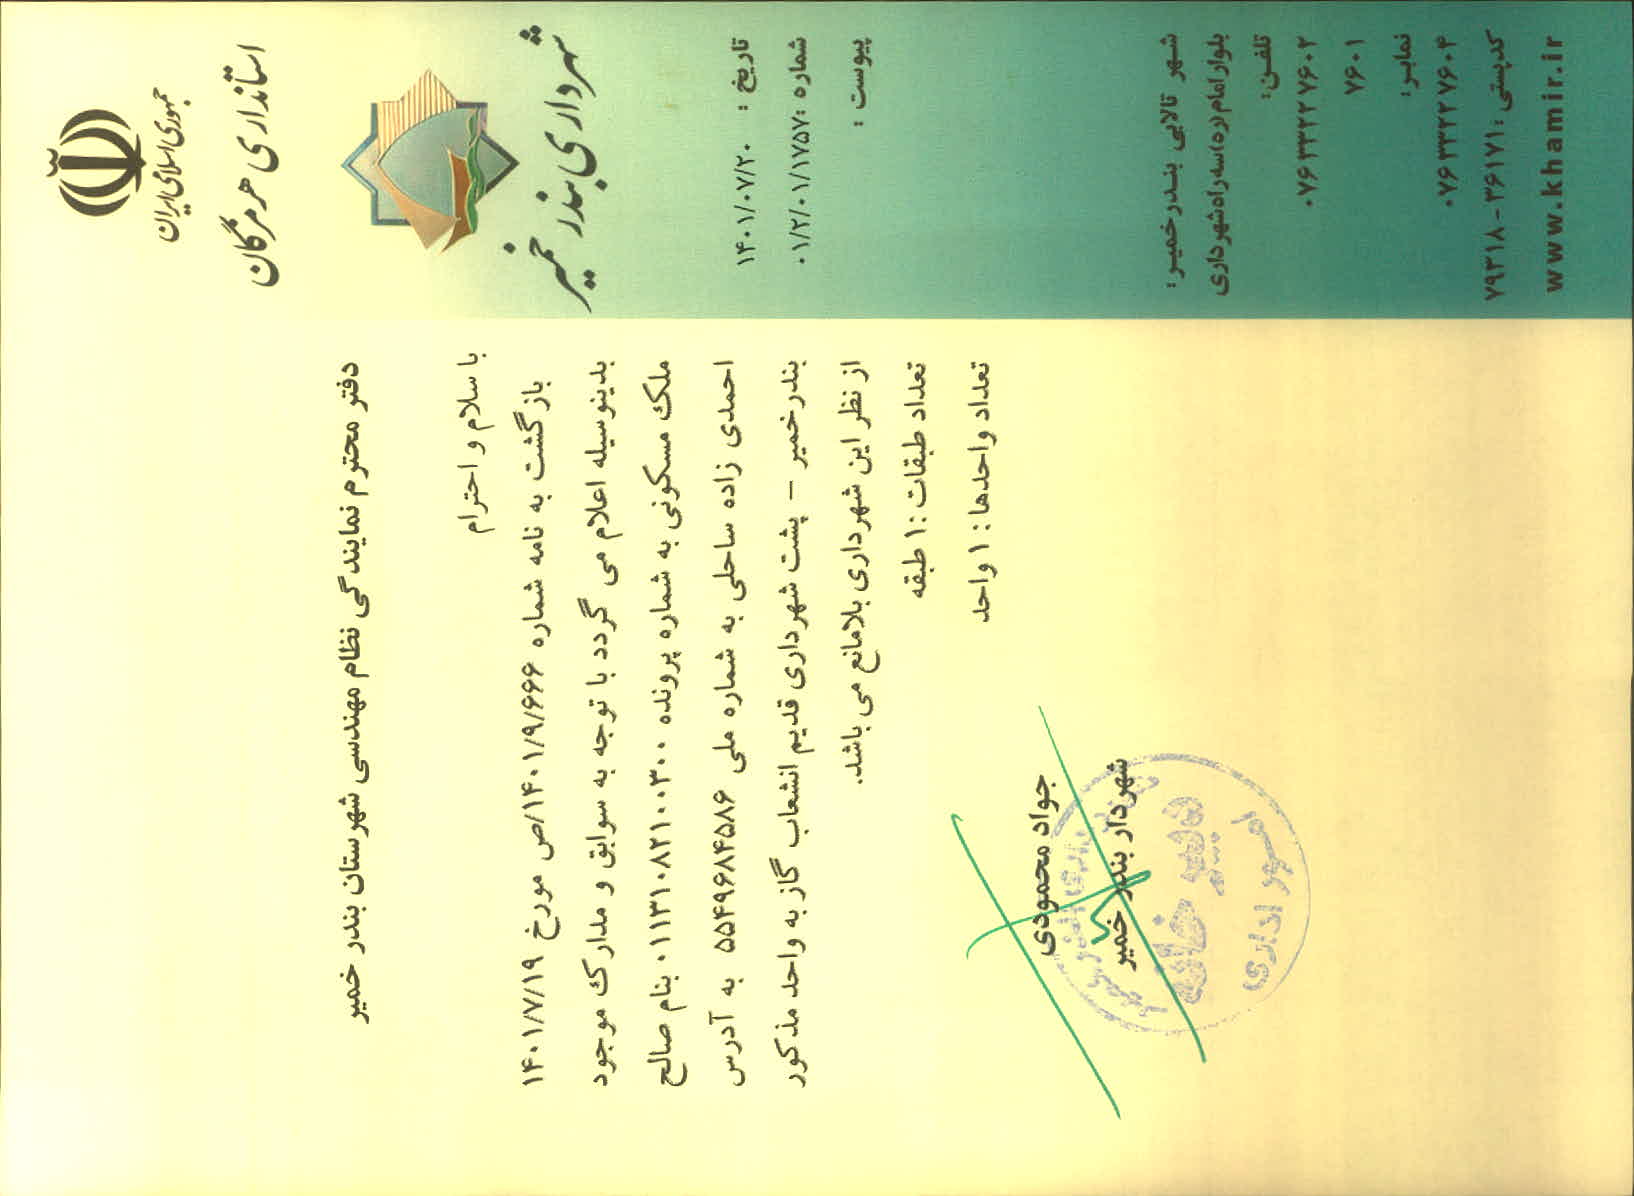 جمهوری اسلامی ایران
استانداری هرمزگان
شهرداری بندر خمیر
تاریخ : ۱۴۰۱/۰۷/۲۰
شماره :۰۱/۲/۰۱/۱۷۵۷
پیوست :
شهر تالابی بندرخمیر:
بلوار امام(ره)سه راه شهرداری
تلفن:
۰۷۶۳۳۲۲۷۶۰۲
۷۶۰۱
نمابر:
۰۷۶۳۳۲۲۷۶۰۴
کدپستی :۳۶۱۷۱-۷۹۳۱۸
www.khamir.ir
دفتر محترم نمایندگی نظام مهندسی شهرستان بندر خمیر
با سلام و احترام
بازگشت به نامه شماره ۱۴۰۱/۹/۶۶۶/ص مورخ ۱۴۰۱/۷/۱۹
بدینوسیله اعلام می گردد با توجه به سوابق و مدارک موجود
ملک مسکونی به شماره پرونده ۰۱۱۳۱۰۸۲۱۰۰۳۰۰ بنام صالح
احمدی زاده ساحلی به شماره ملی ۵۵۴۹۶۸۴۵۸۶ به آدرس
بندرخمیر – پشت شهرداری قدیم انشعاب گاز به واحد مذکور
از نظر این شهرداری بلامانع می باشد.
تعداد طبقات :۱ طبقه
تعداد واحدها : ۱ واحد
جواد محمودی
شهردار بندر خمیر
دبیرخانه
امور اداری